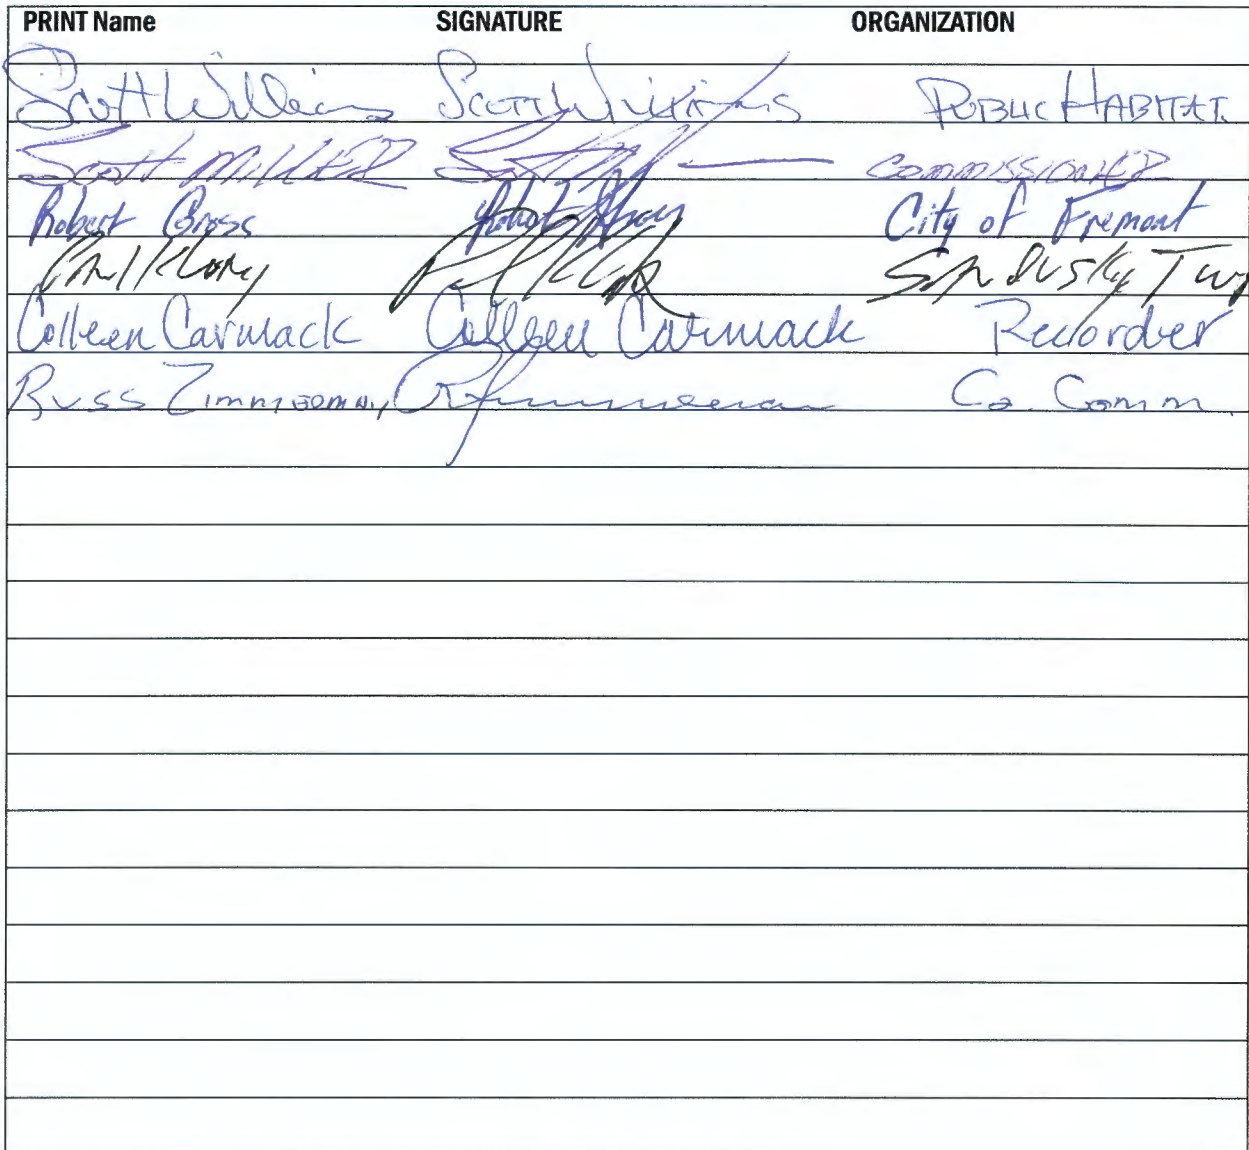 PRINT Name SIGNATURE ORGANIZATION
Scott Williams Scott Williams PUBLIC HABITAT
Scott MILLER COMMISSIONER
Robert Gross Robert Gross City of Fremont
Sandusky Twp
Colleen Carmack Colleen Carmack Recorder
Russ Zimmerman Co. Comm.